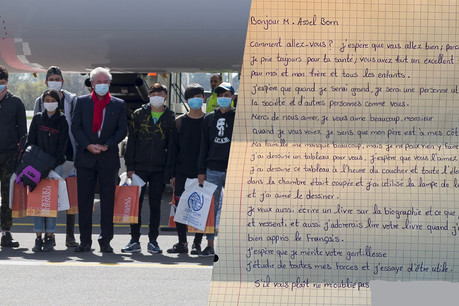 Bonjour M. Assel Born
Comment allez-vous ? j'espère que vous allez bien ; parce
Je prie toujours pour ta santé, vous avez fait un excellent
par moi et mon frère et tous les enfants.
j'espère que quand je serai grand, je serai une personne utile
la société et d'autres personnes comme vous.
Merci de nous aimer, je vous aime beaucoup, monsieur
Quand je vous voie, je sens que mon père est à mes côtés
Ma famille me manque beaucoup, mais je ne peux rien y faire
j'ai dessiné un tableau pour vous, j'espère que vous l'aimez
j'ai dessiné ce tableau à l'heure du coucher et toute l'él
dans la chambre était coupée et j'ai utilisé la lampe de l
et j'ai aimé le dessiner.
je veux aussi écrire un livre sur la biographie et ce que
et ressenti, et aussi j'adorerais lire votre livre quand j'
bien appris le français.
j'espère que je mérite votre gentillesse
j'étudie de toutes mes forces et j'essaye d'être utile.
S'il vous plaît ne m'oublié pas